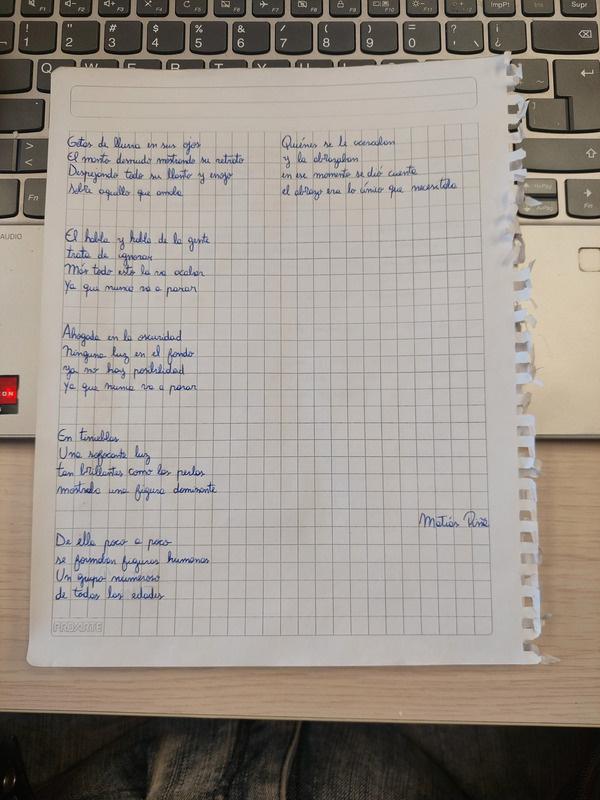 Gotas de lluvia en sus ojos
El manto desnudo mostrando su retrato
Despejando todo su llanto y enojo
Sobre aquello que amaba
El habla y habla de la gente
trata de ignorar
Más todo esto la va acabar
Ya que nunca va a parar
Ahogada en la oscuridad
Ninguna luz en el fondo
ya no hay posibilidad
Ya que nunca va a parar
En tinieblas
Una sofocante luz
tan brillantes como las perlas
mostraba una figura dominante
De ella poco a poco
se formaban figuras humanas
Un grupo numeroso
de todas las edades
Quiénes se le acercaban
y la abrazaban
en ese momento se dió cuenta
el abrazo era lo único que necesitaba
Matías
PROARTE
! 1
" 2
# 3
$ 4
% 5
& 6
/ 7
( 8
) 9
= 0
? '
¿ ¡
Q
W
E
R
T
Y
U
I
O
P
> <
Fn
AUDIO
F1
F2
F3
F4
F5
F6
F7
F8
F9
F10
F11
F12
ImpPt
Ins
Supr
AvPag
Fin